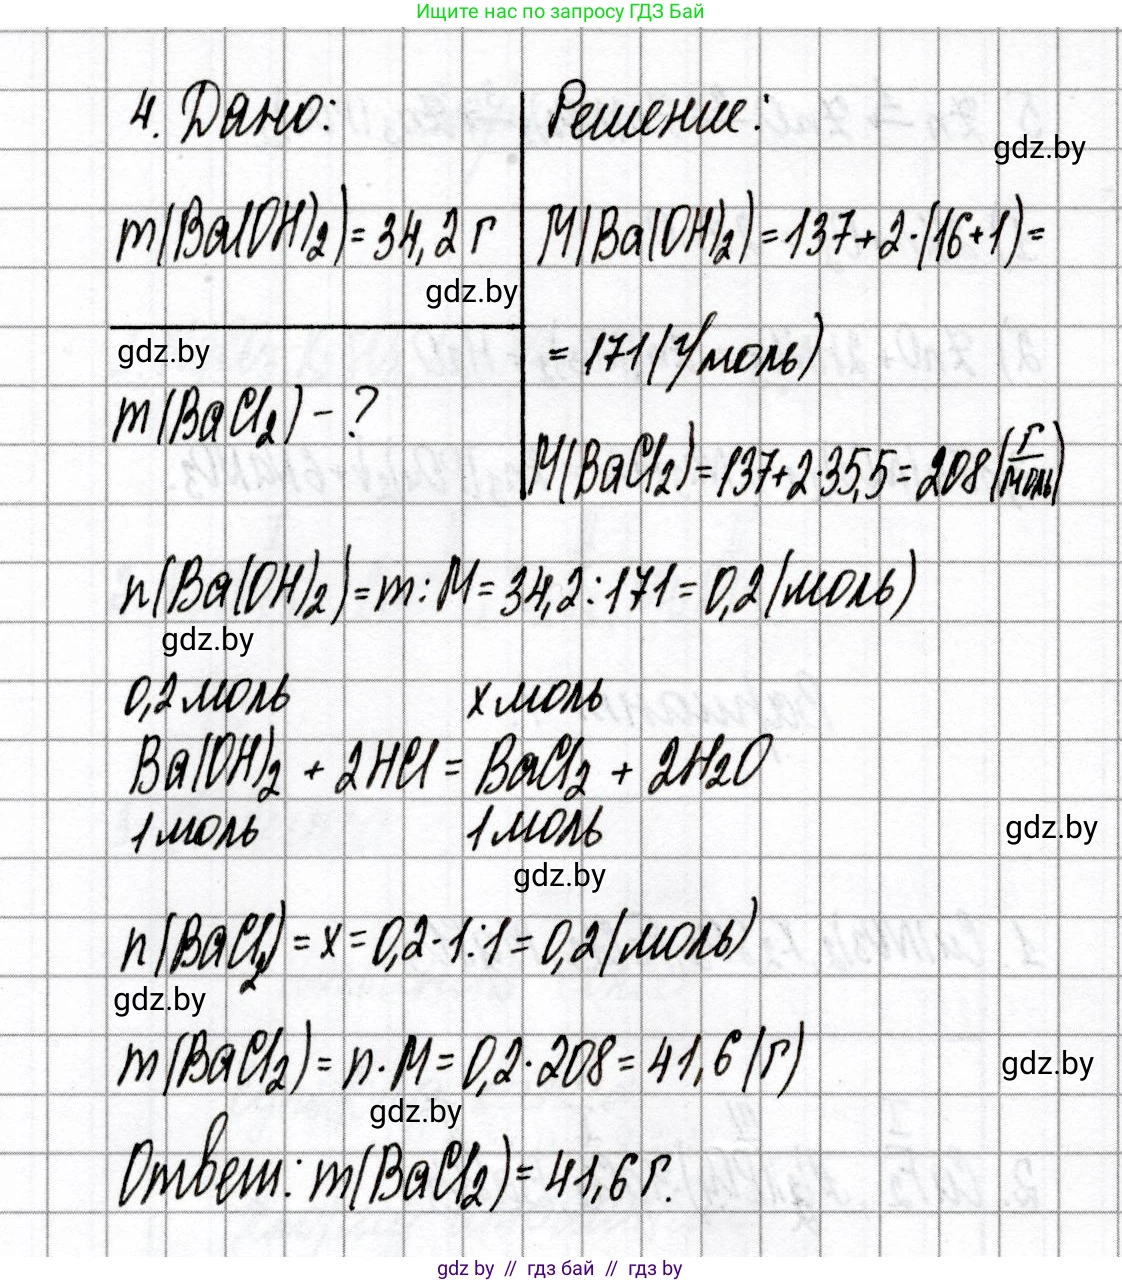 Ищите нас по запросу ГДЗ Бай
4. Дано:
Решение:
gdz.by
m(Ba(OH)₂) = 34,2 г
M(Ba(OH)₂) = 137 + 2·(16+1) =
gdz.by
= 171 (г/моль)
gdz.by
m(BaCl₂) - ?
M(BaCl₂) = 137 + 2·35,5 = 208 (г/моль)
n(Ba(OH)₂) = m : M = 34,2 : 171 = 0,2 (моль)
gdz.by
0,2 моль x моль
Ba(OH)₂ + 2HCl = BaCl₂ + 2H₂O
1 моль 1 моль
gdz.by
gdz.by
n(BaCl₂) = x = 0,2·1:1 = 0,2 (моль)
gdz.by
m(BaCl₂) = n·M = 0,2·208 = 41,6 (г)
gdz.by
gdz.by
Ответ: m(BaCl₂) = 41,6 г.
gdz by // гдз бай // гдз by